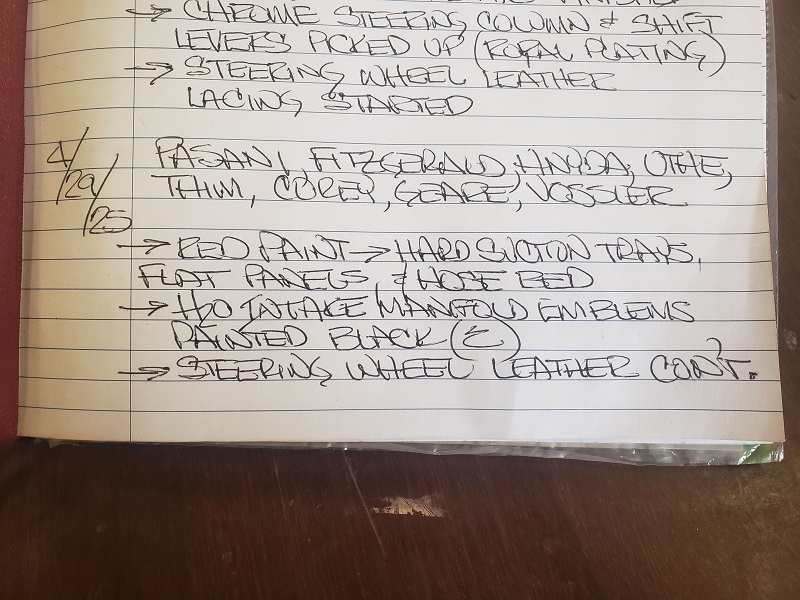 → CHROME STEERING COLUMN & SHIFT
LEVERS PICKED UP (ROYAL PLATING)
→ STEERING WHEEL LEATHER
LACING STARTED
4/29/25 PASANI, FITZGERALD, HNYDA, UTHE,
THIM, COREY, GEARE, VOSSLER
→ RED PAINT → HARD SUCTION TRAYS,
FLAT PANELS, & HOSE BED
→ H2O INTAKE MANIFOLD EMBLEMS
PAINTED BLACK
→ STEERING WHEEL LEATHER CON'T.